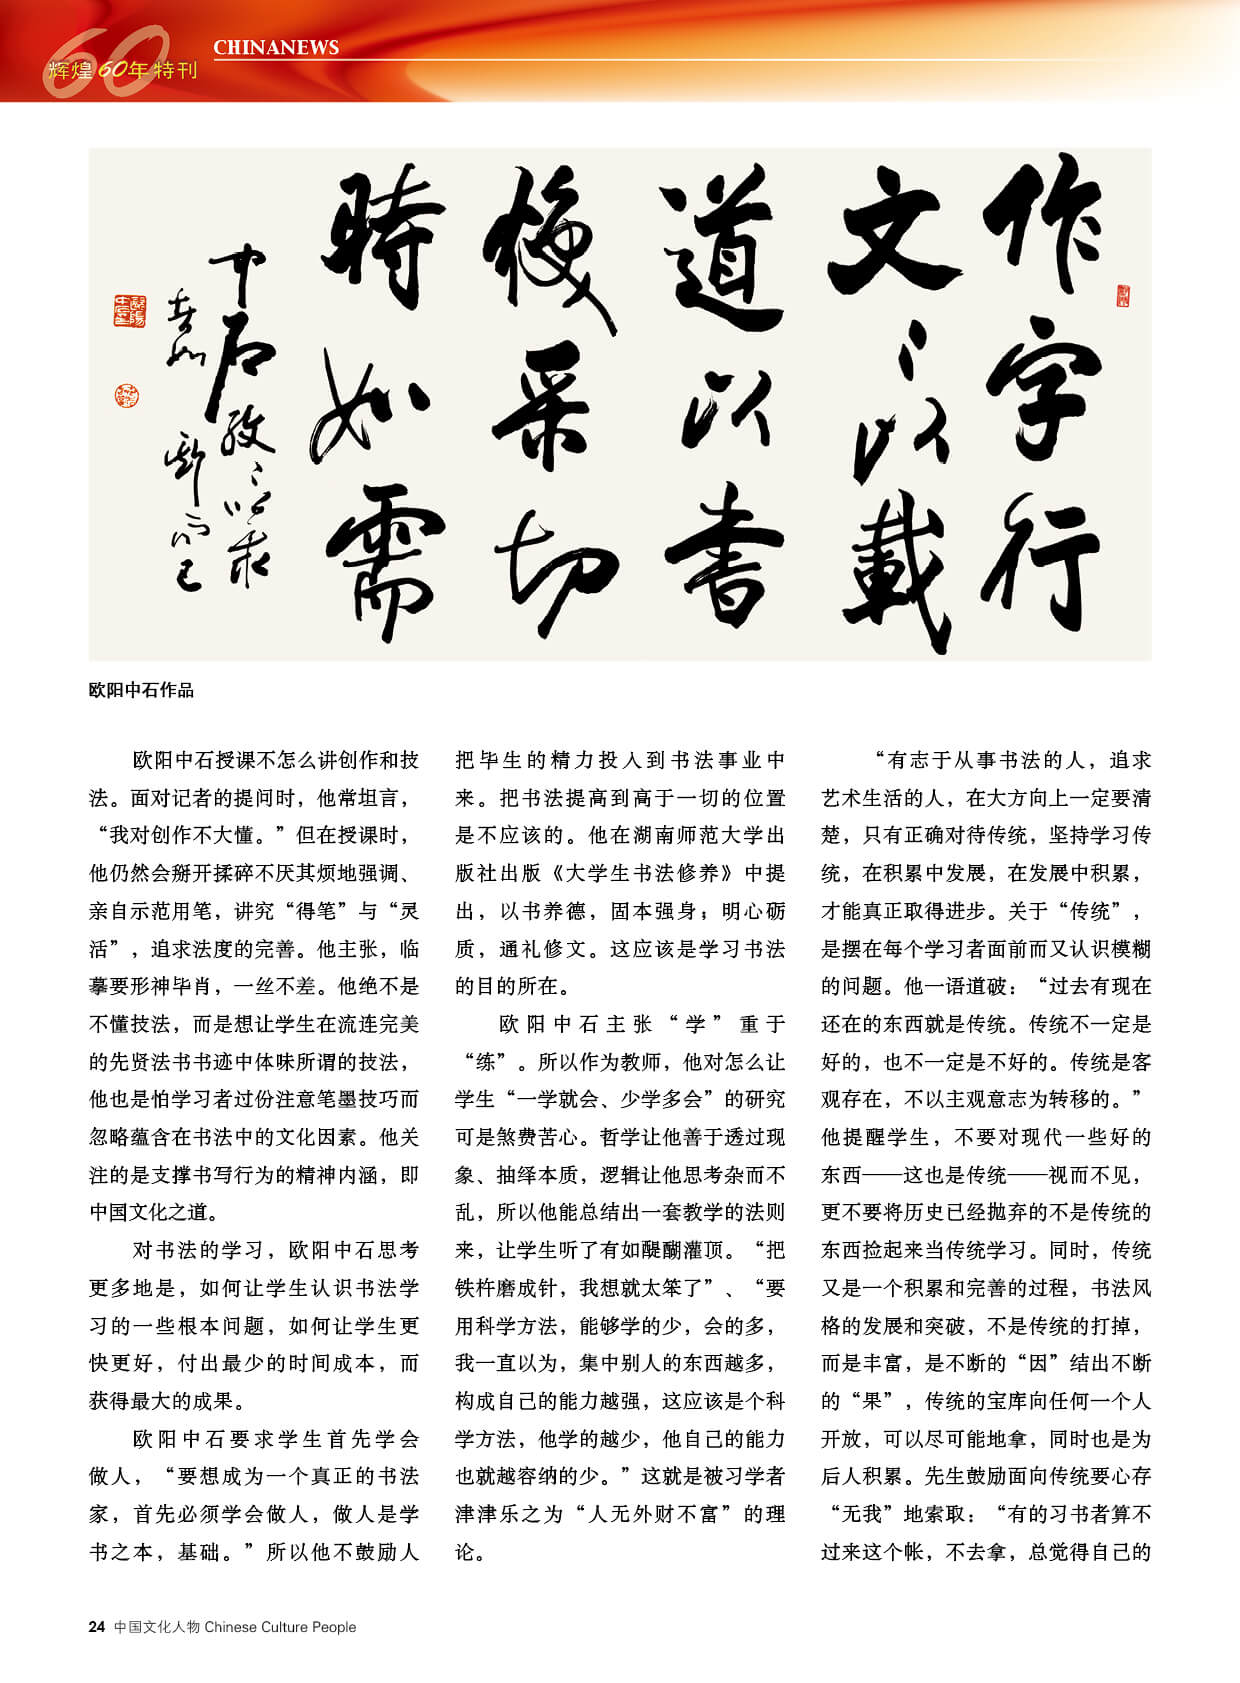 CHINANEWS
辉煌60年特刊
作字行
文之以載
道以书
後采切
時如需
中石孜孜以求
欧阳中石作品
欧阳中石授课不怎么讲创作和技
法。面对记者的提问时，他常坦言，
“我对创作不大懂。”但在授课时，
他仍然会掰开揉碎不厌其烦地强调、
亲自示范用笔，讲究“得笔”与“灵
活”，追求法度的完善。他主张，临
摹要形神毕肖，一丝不差。他绝不是
不懂技法，而是想让学生在流连完美
的先贤法书书迹中体味所谓的技法，
他也是怕学习者过份注意笔墨技巧而
忽略蕴含在书法中的文化因素。他关
注的是支撑书写行为的精神内涵，即
中国文化之道。
对书法的学习，欧阳中石思考
更多地是，如何让学生认识书法学
习的一些根本问题，如何让学生更
快更好，付出最少的时间成本，而
获得最大的成果。
欧阳中石要求学生首先学会
做人，“要想成为一个真正的书法
家，首先必须学会做人，做人是学
书之本，基础。”所以他不鼓励人
把毕生的精力投入到书法事业中
来。把书法提高到高于一切的位置
是不应该的。他在湖南师范大学出
版社出版《大学生书法修养》中提
出，以书养德，固本强身；明心砺
质，通礼修文。这应该是学习书法
的目的所在。
欧阳中石主张“学”重于
“练”。所以作为教师，他对怎么让
学生“一学就会、少学多会”的研究
可是煞费苦心。哲学让他善于透过现
象、抽绎本质，逻辑让他思考杂而不
乱，所以他能总结出一套教学的法则
来，让学生听了有如醍醐灌顶。“把
铁杵磨成针，我想就太笨了”、“要
用科学方法，能够学的少，会的多，
我一直以为，集中别人的东西越多，
构成自己的能力越强，这应该是个科
学方法，他学的越少，他自己的能力
也就越容纳的少。”这就是被习学者
津津乐之为“人无外财不富”的理
论。
“有志于从事书法的人，追求
艺术生活的人，在大方向上一定要清
楚，只有正确对待传统，坚持学习传
统，在积累中发展，在发展中积累，
才能真正取得进步。关于“传统”，
是摆在每个学习者面前而又认识模糊
的问题。他一语道破：“过去有现在
还在的东西就是传统。传统不一定是
好的，也不一定是不好的。传统是客
观存在，不以主观意志为转移的。”
他提醒学生，不要对现代一些好的
东西——这也是传统——视而不见，
更不要将历史已经抛弃的不是传统的
东西捡起来当传统学习。同时，传统
又是一个积累和完善的过程，书法风
格的发展和突破，不是传统的打掉，
而是丰富，是不断的“因”结出不断
的“果”，传统的宝库向任何一个人
开放，可以尽可能地拿，同时也是为
后人积累。先生鼓励面向传统要心存
“无我”地索取：“有的习书者算不
过来这个帐，不去拿，总觉得自己的
24 中国文化人物 Chinese Culture People